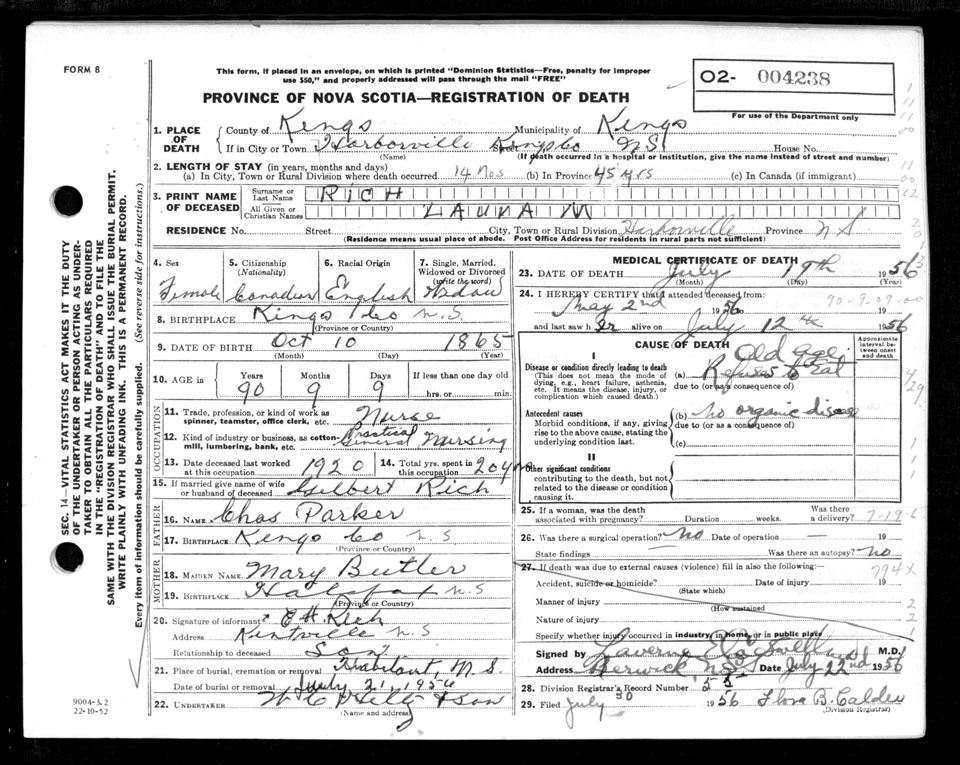 FORM 8
This form, if placed in an envelope, on which is printed "Dominion Statistics—Free, penalty for improper
use $50," and properly addressed will pass through the mail "FREE"
O2- 004238
For use of the Department only
PROVINCE OF NOVA SCOTIA—REGISTRATION OF DEATH
1. PLACE OF DEATH County of Kings Municipality of Kings
If in City or Town Harborville Street Kings Co NS House No.
(Name) (If death occurred in a hospital or institution, give the name instead of street and number)
2. LENGTH OF STAY (in years, months and days)
(a) In City, Town or Rural Division where death occurred 14 Mos (b) In Province 45 yrs (c) In Canada (if immigrant)
3. PRINT NAME OF DECEASED Surname or Last Name RICH
All Given or Christian Names LAURA M
RESIDENCE No. Street City, Town or Rural Division Harborville Province N S
(Residence means usual place of abode. Post Office Address for residents in rural parts not sufficient)
4. Sex Female
5. Citizenship (Nationality) Canadian
6. Racial Origin English
7. Single, Married, Widowed or Divorced (write the word) Widow
8. BIRTHPLACE Kings Co N.S.
(Province or Country)
9. DATE OF BIRTH Oct 10 1865
(Month) (Day) (Year)
10. AGE in Years 90 Months 9 Days 9 If less than one day old
hrs. or min.
OCCUPATION
11. Trade, profession, or kind of work as spinner, teamster, office clerk, etc. Nurse
12. Kind of industry or business, as cotton-mill, lumbering, bank, etc. Practical General Nursing
13. Date deceased last worked at this occupation 1920
14. Total yrs. spent in this occupation 20 yrs
15. If married give name of wife or husband of deceased Gilbert Rich
FATHER
16. NAME Chas Parker
17. BIRTHPLACE Kings Co N S
(Province or Country)
MOTHER
18. MAIDEN NAME Mary Butler
19. BIRTHPLACE Halifax N.S
(Province or Country)
20. Signature of informant E H. Rich
Address Kentville N.S
Relationship to deceased Son
21. Place of burial, cremation or removal Habitant, N.S.
Date of burial or removal July 21, 1956
22. UNDERTAKER W C Hiltz & Son
(Name and Address)
MEDICAL CERTIFICATE OF DEATH
23. DATE OF DEATH July 19th 1956
(Month) (Day)
24. I HEREBY CERTIFY that I attended deceased from
May 2nd 1956 to
90-9-09-00
and last saw her alive on July 12th 1956
CAUSE OF DEATH
Approximate interval between onset and death
I
Disease or condition directly leading to death
(This does not mean the mode of dying, e.g., heart failure, asthenia, etc. It means the disease, injury, or complication which caused death.)
Old age.
(a) Refuses to Eat
due to (or as a consequence of)
Antecedent causes
Morbid conditions, if any, giving rise to the above cause, stating the underlying condition last.
(b) No organic disease
due to (or as a consequence of)
(c)
II
Other significant conditions
contributing to the death, but not related to the disease or condition causing it.
25. If a woman, was the death associated with pregnancy? Duration weeks. Was there a delivery? 7-19-6
26. Was there a surgical operation? No Date of operation — 19
State findings — Was there an autopsy? No
27. If death was due to external causes (violence) fill in also the following:—
794X
Accident, suicide or homicide? Date of injury 19
(State which)
Manner of injury
(How sustained
Nature of injury
Specify whether injury occurred in industry, in home, or in public place
Signed by Laverne M.D.
Address Berwick, N.S. Date July 22nd 1956
28. Division Registrar's Record Number 55
29. Filed July 30 1956 Flora B. Calder
(Division Registrar)
SEC. 14—VITAL STATISTICS ACT MAKES IT THE DUTY
OF THE UNDERTAKER OR PERSON ACTING AS UNDER-
TAKER TO OBTAIN ALL THE PARTICULARS REQUIRED
IN THE "REGISTRATION OF DEATH" AND TO FILE THE
SAME WITH THE DIVISION REGISTRAR WHO SHALL ISSUE THE BURIAL PERMIT.
WRITE PLAINLY WITH UNFADING INK. THIS IS A PERMANENT RECORD.
Every item of information should be carefully supplied. (See reverse side for instructions.)
9004-3.2
22-10-52